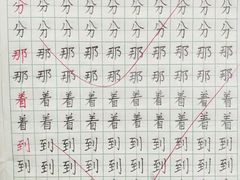 分分分分分分分分分
分分分分分分分分分
那那那那那那那那那
那那那那那那那那那
着着着着着着着着着
着着着着着着着着着
到到到到到到到到到
到到到到到到到到到